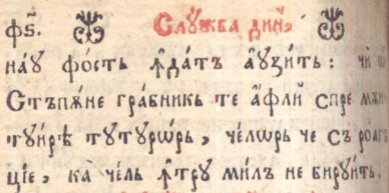 фѕ҃. Слꙋ́жба ди́н
наꙋ фо́сть ꙟ҆да́тъ а҆ꙋзи́тъ : чѝ
Стъпѫ́не гра́бникь те а҆́фли спре мѫн
тꙋи́рѣ тꙋтꙋрѡ́рь , че́лѡрь че съ роагъ
ціе , ка̀ че́ль ꙟ҆трꙋ ми́лъ не бирꙋи́ть .